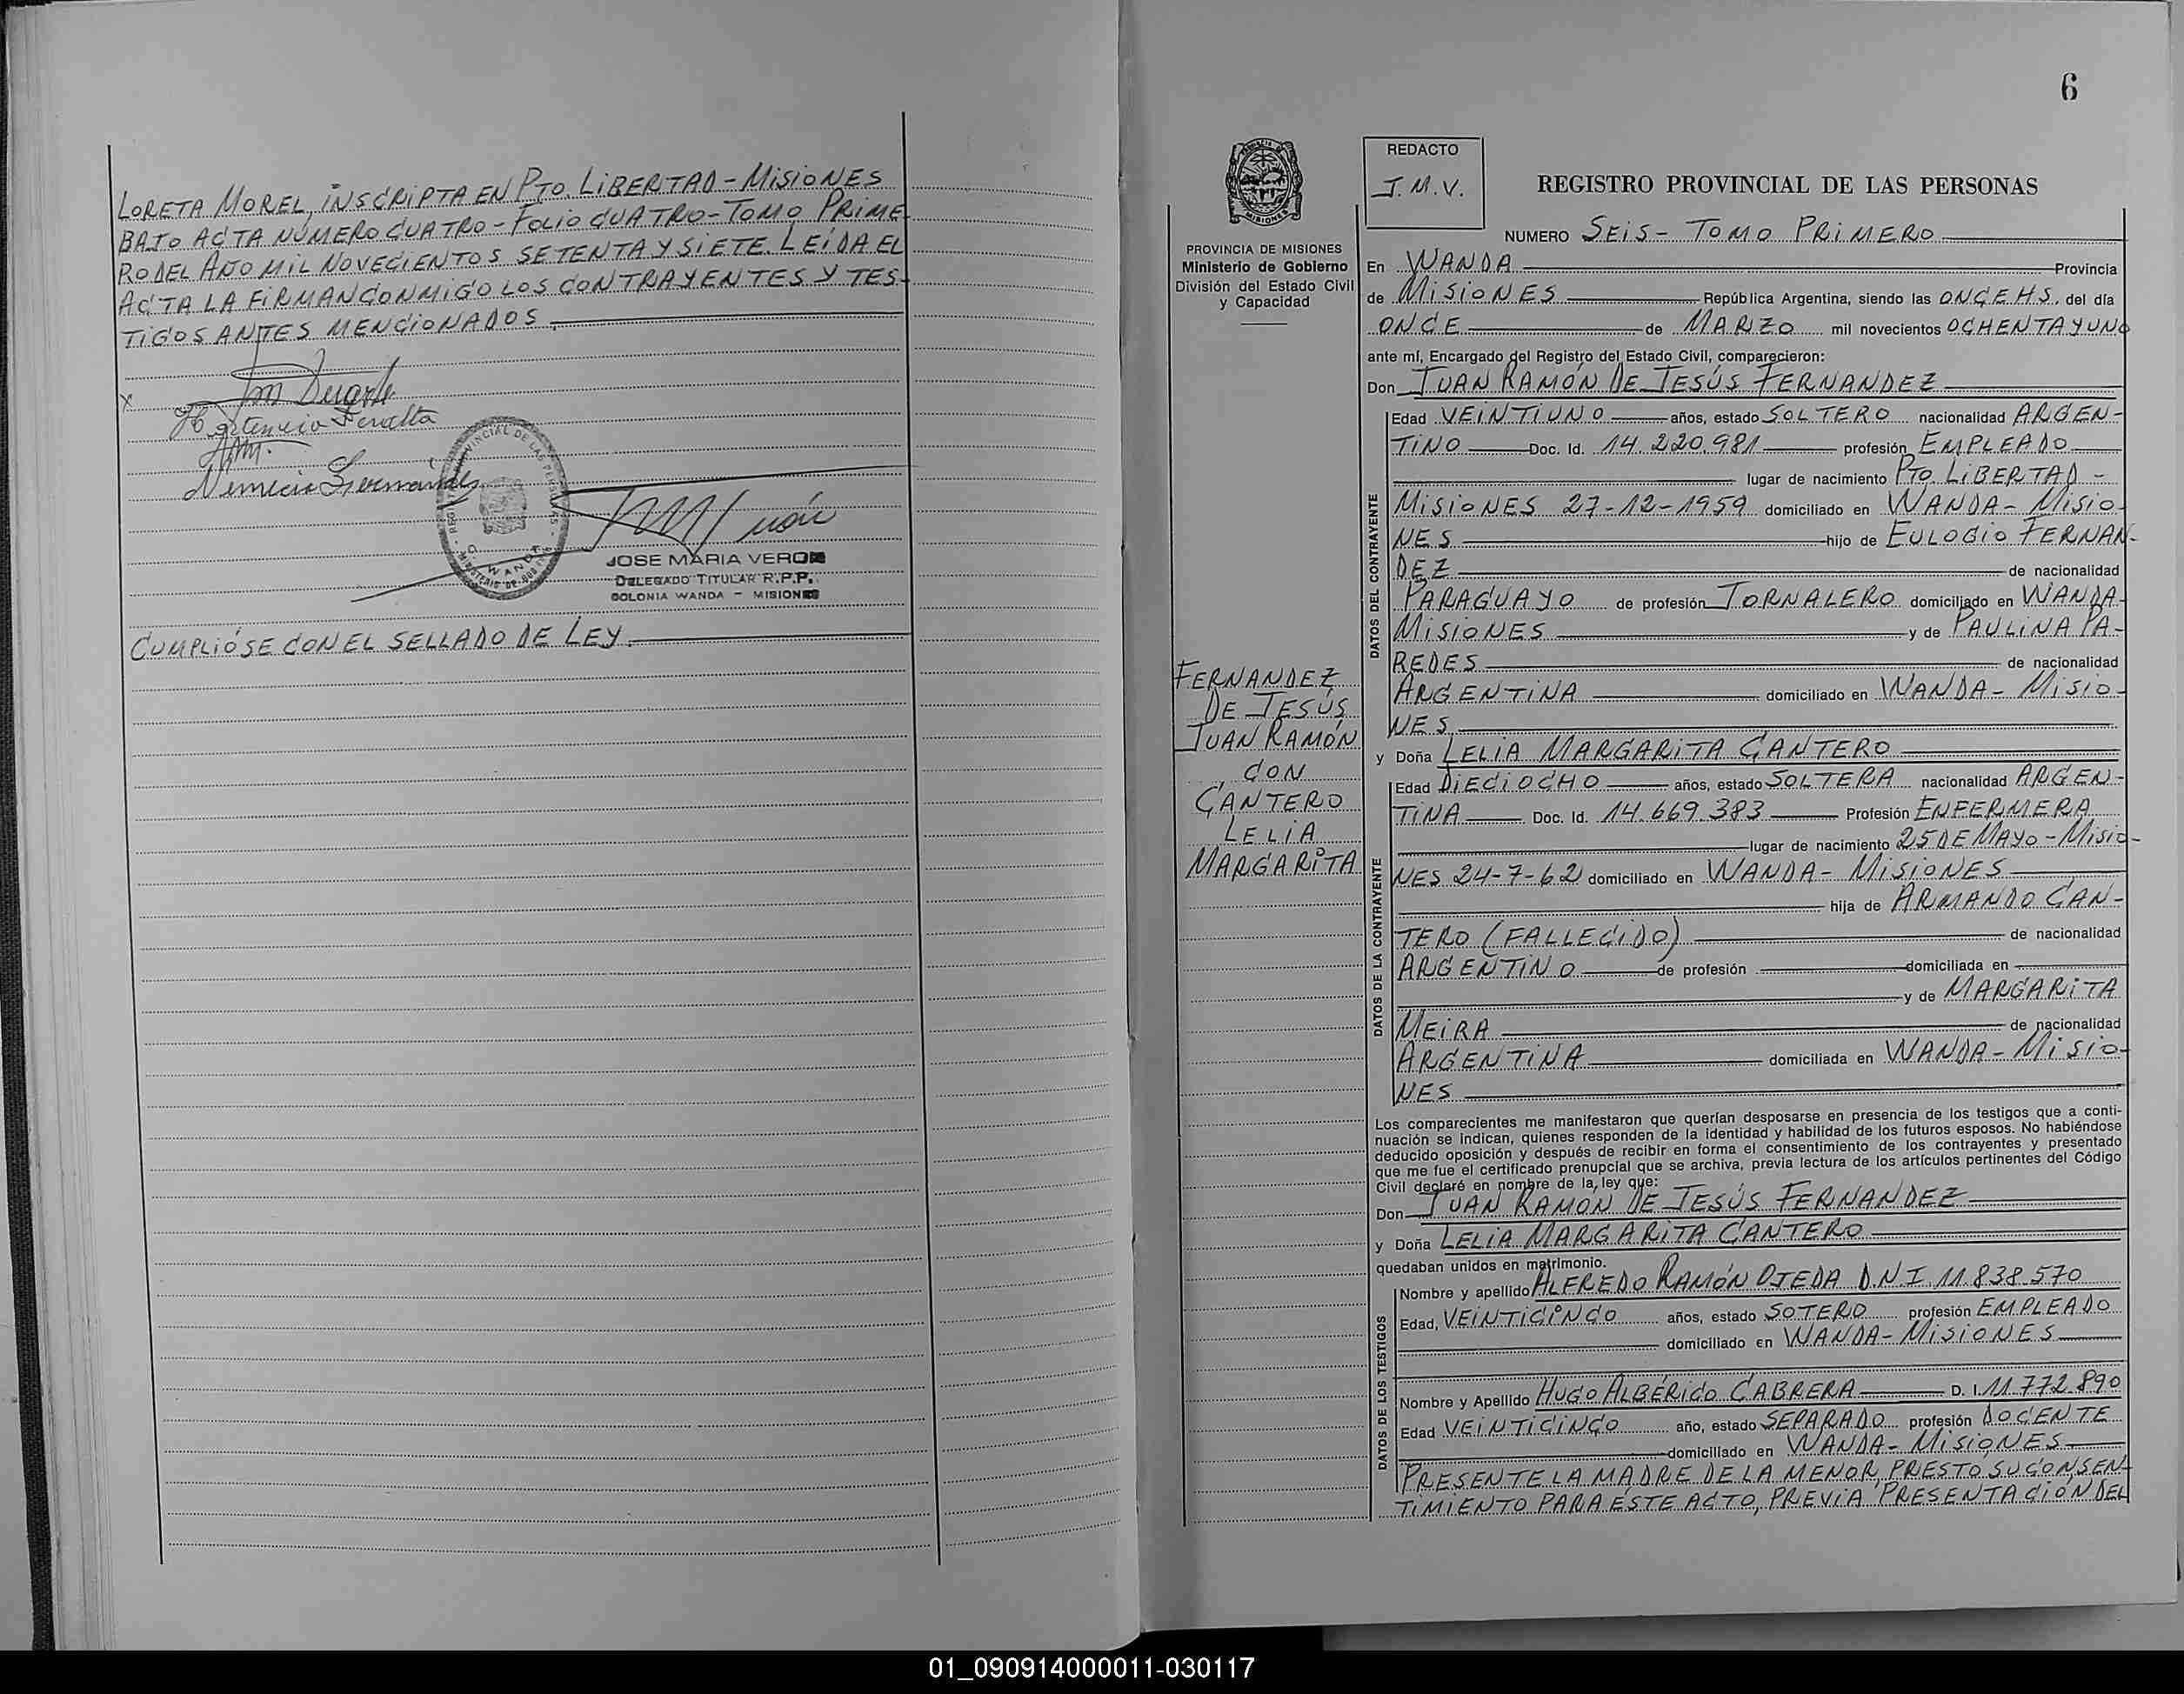 LORETA MOREL, INSCRIPTA EN PTO. LIBERTAD - MISIONES
BAJO ACTA NÚMERO CUATRO - FOLIO CUATRO - TOMO PRIME-
RO DEL AÑO MIL NOVECIENTOS SETENTA Y SIETE. LEÍDA EL
ACTA LA FIRMAN CONMIGO LOS CONTRAYENTES Y TES-
TIGOS ANTES MENCIONADOS.
x Duarte
Hortencia Peralta
REGISTRO PROVINCIAL DE LAS PERSONAS
WANDA
JOSE MARIA VERON
DELEGADO TITULAR R.P.P.
COLONIA WANDA - MISIONES
CUMPLIÓSE CON EL SELLADO DE LEY.
6
PROVINCIA DE MISIONES
Ministerio de Gobierno
División del Estado Civil
y Capacidad
FERNANDEZ
DE JESÚS
JUAN RAMÓN
CON
CANTERO
LELIA
MARGARITA
REDACTO
J.M.V.
REGISTRO PROVINCIAL DE LAS PERSONAS
NUMERO SEIS - TOMO PRIMERO
En WANDA Provincia
de MISIONES República Argentina, siendo las ONCE HS. del día
ONCE de MARZO mil novecientos OCHENTA Y UNO
ante mí, Encargado del Registro del Estado Civil, comparecieron:
Don JUAN RAMÓN DE JESÚS FERNANDEZ
DATOS DEL CONTRAYENTE
Edad VEINTIUNO años, estado SOLTERO nacionalidad ARGEN-
TINO Doc. Id. 14.220.981 profesión EMPLEADO
lugar de nacimiento PTO. LIBERTAD -
MISIONES 27-12-1959 domiciliado en WANDA - MISIO-
NES hijo de EULOGIO FERNAN-
DEZ de nacionalidad
PARAGUAYO de profesión JORNALERO domiciliado en WANDA-
MISIONES y de PAULINA PA-
REDES de nacionalidad
ARGENTINA domiciliado en WANDA - MISIO-
NES
y Doña LELIA MARGARITA CANTERO
DATOS DE LA CONTRAYENTE
Edad DIECIOCHO años, estado SOLTERA nacionalidad ARGEN-
TINA Doc. Id. 14.669.383 Profesión ENFERMERA
lugar de nacimiento 25 DE MAYO - MISIO-
NES 24-7-62 domiciliado en WANDA - MISIONES
hija de ARMANDO CAN-
TERO (FALLECIDO) de nacionalidad
ARGENTINO de profesión domiciliada en
y de MARGARITA
MEIRA de nacionalidad
ARGENTINA domiciliada en WANDA - MISIO-
NES
Los comparecientes me manifestaron que querían desposarse en presencia de los testigos que a conti-
nuación se indican, quienes responden de la identidad y habilidad de los futuros esposos. No habiéndose
deducido oposición y después de recibir en forma el consentimiento de los contrayentes y presentado
que me fue el certificado prenupcial que se archiva, previa lectura de los artículos pertinentes del Código
Civil declaré en nombre de la ley que:
Don JUAN RAMÓN DE JESÚS FERNANDEZ
y Doña LELIA MARGARITA CANTERO
quedaban unidos en matrimonio.
DATOS DE LOS TESTIGOS
Nombre y apellido ALFREDO RAMÓN OJEDA D.N.I. 11.838.570
Edad, VEINTICINCO años, estado SOTERO profesión EMPLEADO
domiciliado en WANDA - MISIONES
Nombre y Apellido HUGO ALBÉRICO CABRERA D. I. 11.772.890
Edad VEINTICINCO año, estado SEPARADO profesión DOCENTE
domiciliado en WANDA - MISIONES
PRESENTE LA MADRE DE LA MENOR, PRESTO SU CONSEN-
TIMIENTO PARA ÉSTE ACTO, PREVIA PRESENTACIÓN DEL
01_090914000011-030117